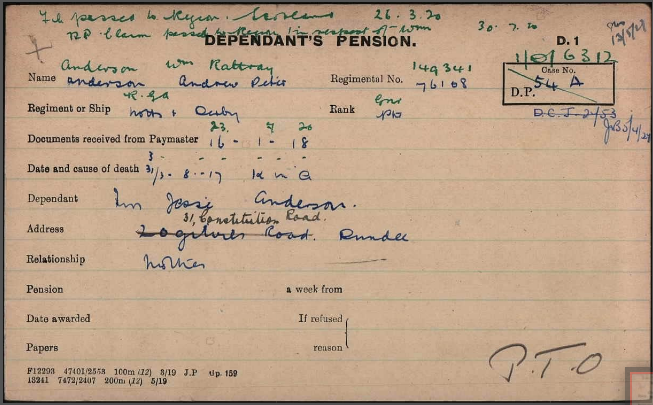 passed to Region. Scotland 26.3.20
Claim passed to Region in respect of 30.7.20
DEPENDANT'S PENSION. D.1
1/D/6312
Anderson Wm Rattray 149341
Name Anderson Andrew Peter Regimental No. 76108
Case No.
D.P. 54 A
R.G.A Gnr
Regiment or Ship Notts & Derby Rank Pte
23 7 20
Documents received from Paymaster 16 - 1 - 18
Date and cause of death 31/3 - 8 - 17 K in A
Dependant Jessie Anderson.
31, Constitution Road.
Address Road. Dundee
Relationship Mother
Pension a week from
Date awarded If refused
Papers reason
P.T.O
F12293 47401/2553 100m (12) 3/19 J.P Gp. 159
13241 7472/2407 200m (12) 5/19